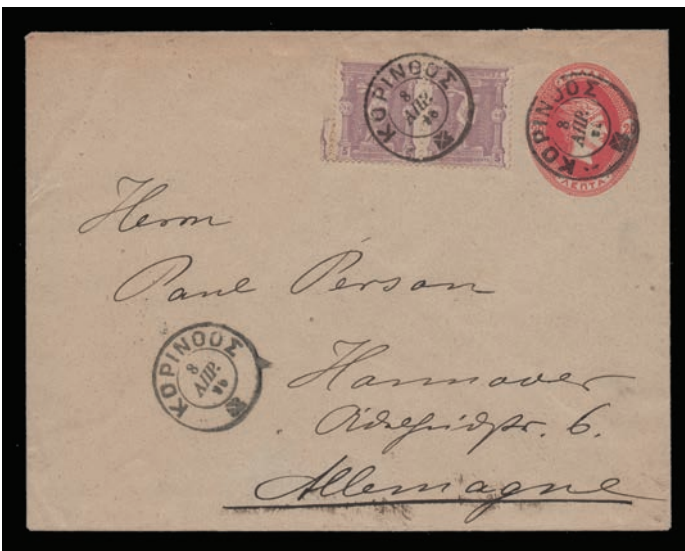 ΚΟΡΙΝΘΟΣ
8
ΑΠΡ.
96
5 5
ΚΟΡΙΝΘΟΣ
8
ΑΠΡ.
96
ΛΕΠΤΑ
Herrn
Paul Person
ΚΟΡΙΝΘΟΣ
8
ΑΠΡ.
96
Hannover
Adelheidstr. 6.
Allemagne